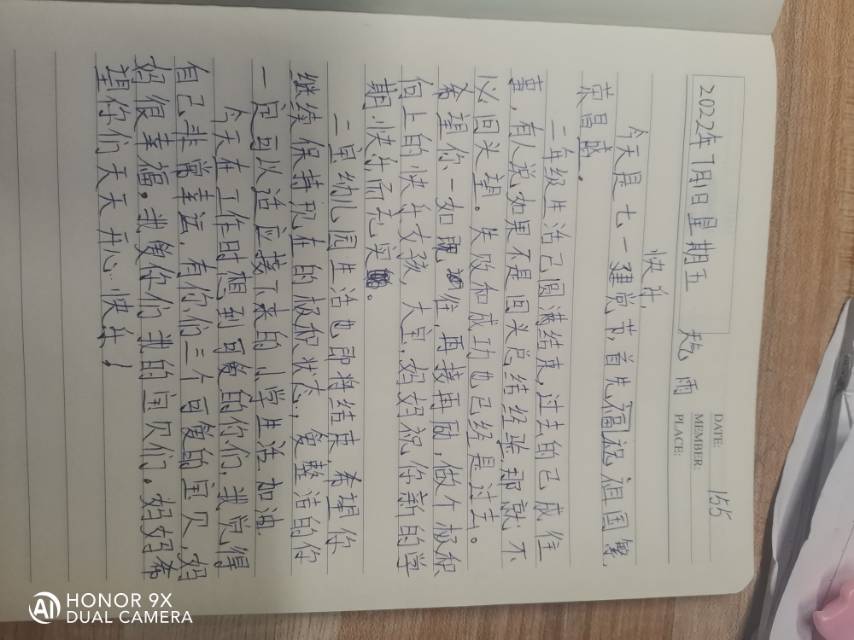 DATE: 155
MEMBER:
PLACE:
2022年7月1日 星期五 雨
快乐
今天是七一建党节,首先福祝祖国繁
荣昌盛。
二年级生活已圆满结束,过去的已成往
事,有人说如果不是回头总结经验,那就不
必回头望。失败和成功也已经是过去。
希望你一如既往,再接再励,做个极积
向上的快乐女孩,大宝,妈妈祝你新的学
期,快乐而充实。
二宝幼儿园生活也即将结束,希望你
继续保持现在的极积状态,爱整洁的你
一定可以适应接下来的小学生活,加油
今天在工作时想到可爱的你们,我觉得
自己非常幸运,有你们二个可爱的宝贝,妈
妈很幸福。我爱你们我的宝贝们。妈妈希
望你们天天开心快乐!
HONOR 9X
DUAL CAMERA